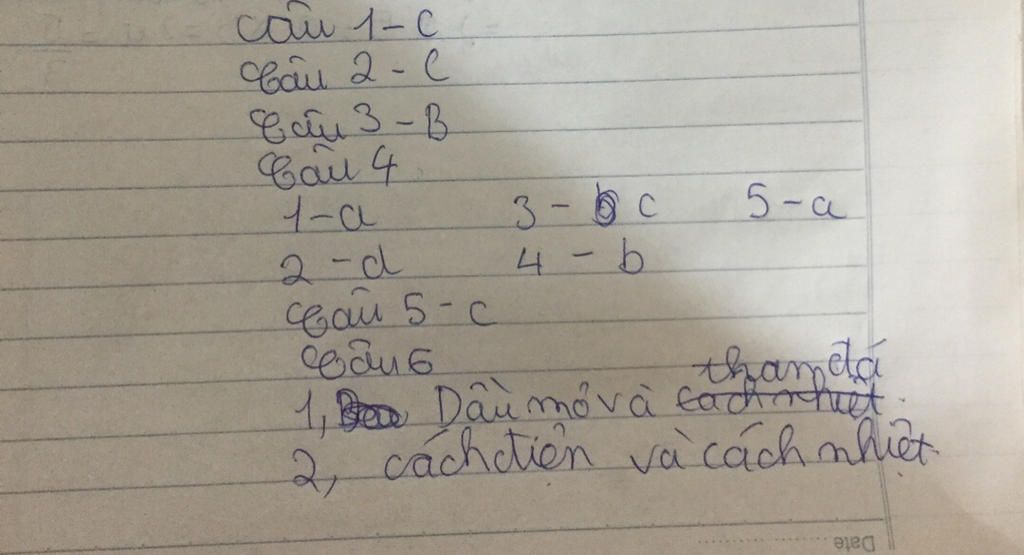 Câu 1 - C
Câu 2 - C
Câu 3 - B
Câu 4
1 - a 3 - c 5 - a
2 - d 4 - b
Câu 5 - c
Câu 6
than đá
1, Dầu mỏ và cách nhiệt.
2, cách điện và cách nhiệt.
Date